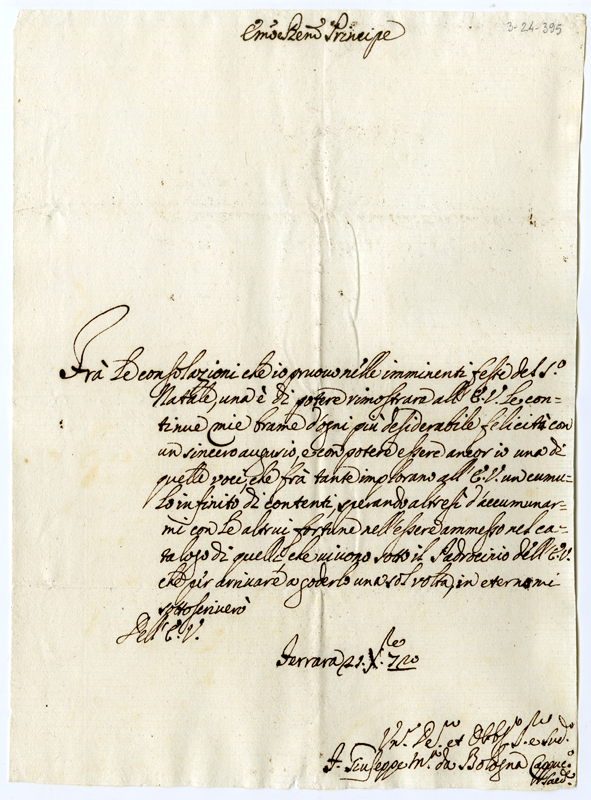 3-24-395
Principe
Frà le consolazioni che io pruovo nelle imminenti feste del S.º
Natale, una è di potere rimostrare all'E.V. le con-
tinue mie brame d'ogni più desiderabile felicità con
un sincero augurio, e con potere essere ancor io una di
quelle voci, che frà tante implorano all'E.V. un cumu-
lo infinito di contenti, sperando altresì d'accumunar-
mi con le altrui fortune nell'essere ammesso nel ca-
talogo di quelli, che vivono sotto il Padrocinio dell'E.V.
che per arrivare a goderlo una sol volta, in eterno mi
sottoscriverò
Dell'E.V.
Ferrara 21. Xbre 720
et
F. Giuseppe Mª. da Bologna